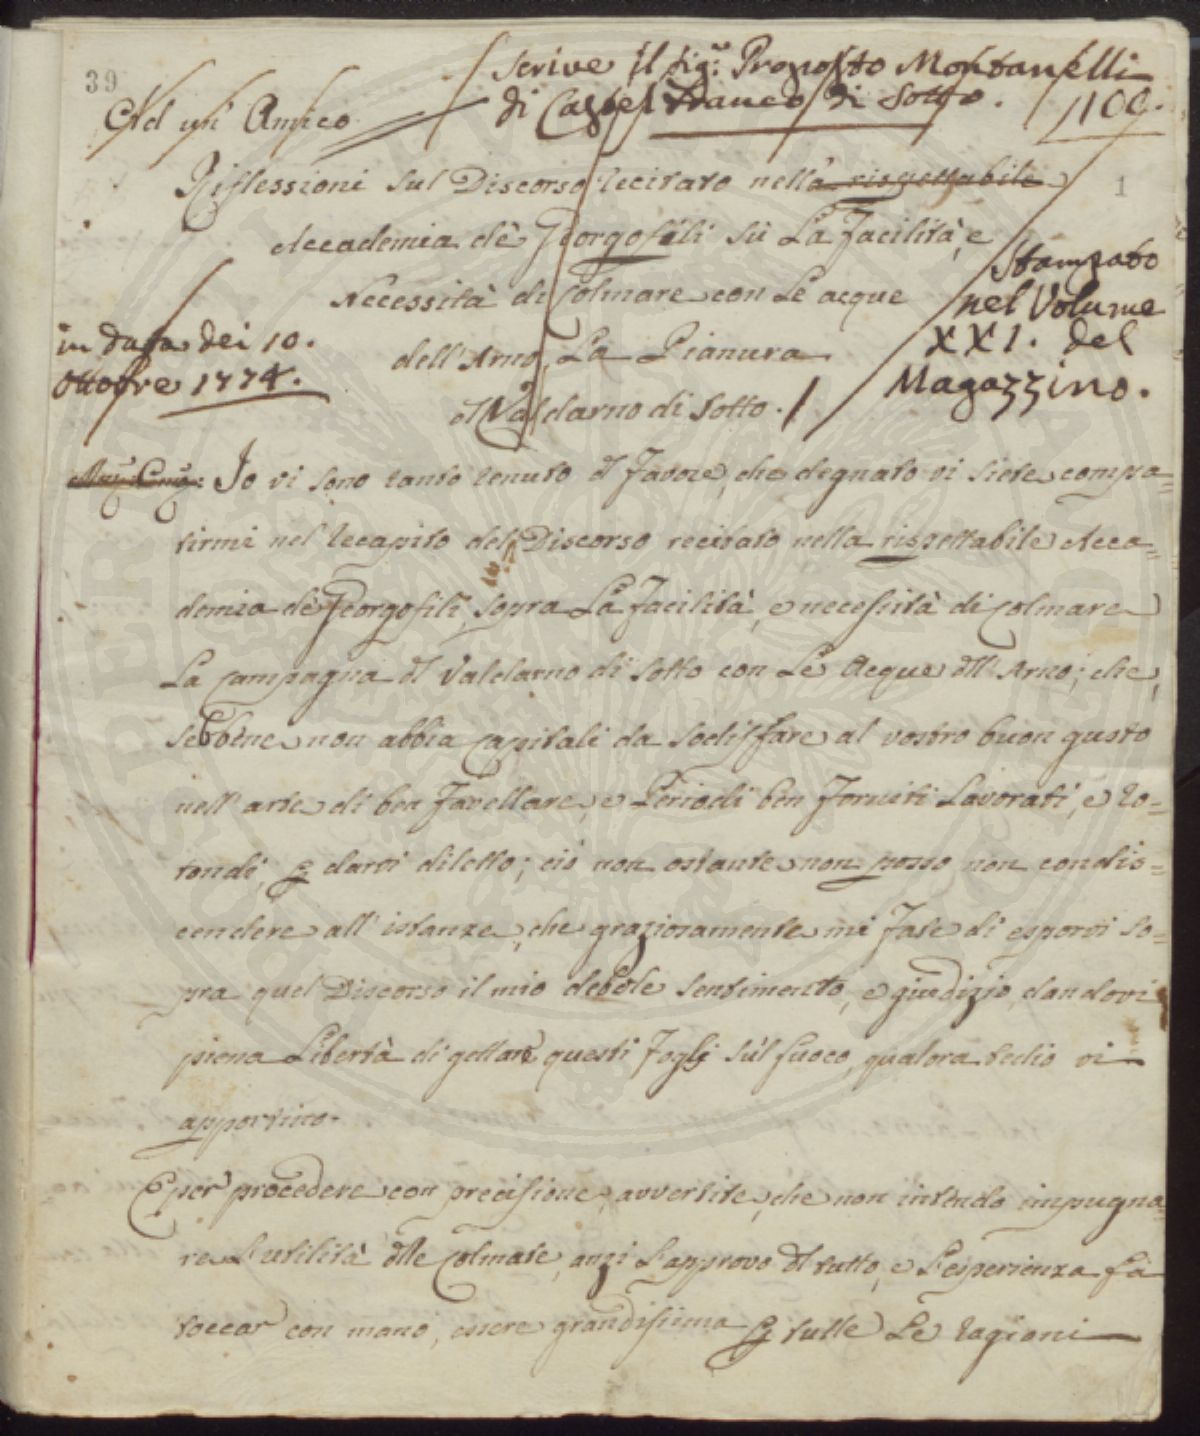 39
Scrive il Sig.r Proposto Montanelli
di Castel Franco di Sotto.
1100.
Ad un' Amico
Riflessioni sul Discorso recitato nella rispettabile
1
Accademia de' Georgofili sù La facilità, e
Necessità di Colmare con Le acque
dell'Arno, La Pianura
d Valdarno di Sotto.
Stampato
nel Volume
XXI. del
Magazzino.
in data dei 10.
Ottobre 1774.
Io vi sono tanto tenuto d favore, che degnato vi siete compa=
tirmi nel recapito del Discorso recitato nella rispettabile Acca=
demia de' Georgofili, sopra La facilità, e necessità di Colmare
La Campagna d Valdarno di Sotto con Le Acque dll' Arno; che,
sebbene non abbia Capitali da sodisfare al vostro buon gusto
nell' arte di ben favellare, e Periodi ben forniti Lavorati, e ro=
tondi, p darvi diletto; ciò non ostante non posso non condis=
cendere all' istanze, che graziosamente mi fate di esporvi so=
pra quel Discorso il mio debole sentimento, e giudizio, dandovi
piena Libertà di gettare questi fogli sùl fuoco, qualora tedio vi
apportino.
E per procedere con precisione, avvertite, che non intendo impugna=
re L'utilità dlle Colmate, anzi L'approvo d tutto, e L'esperienza fa
toccar con mano, essere grandissima p tutte Le ragioni